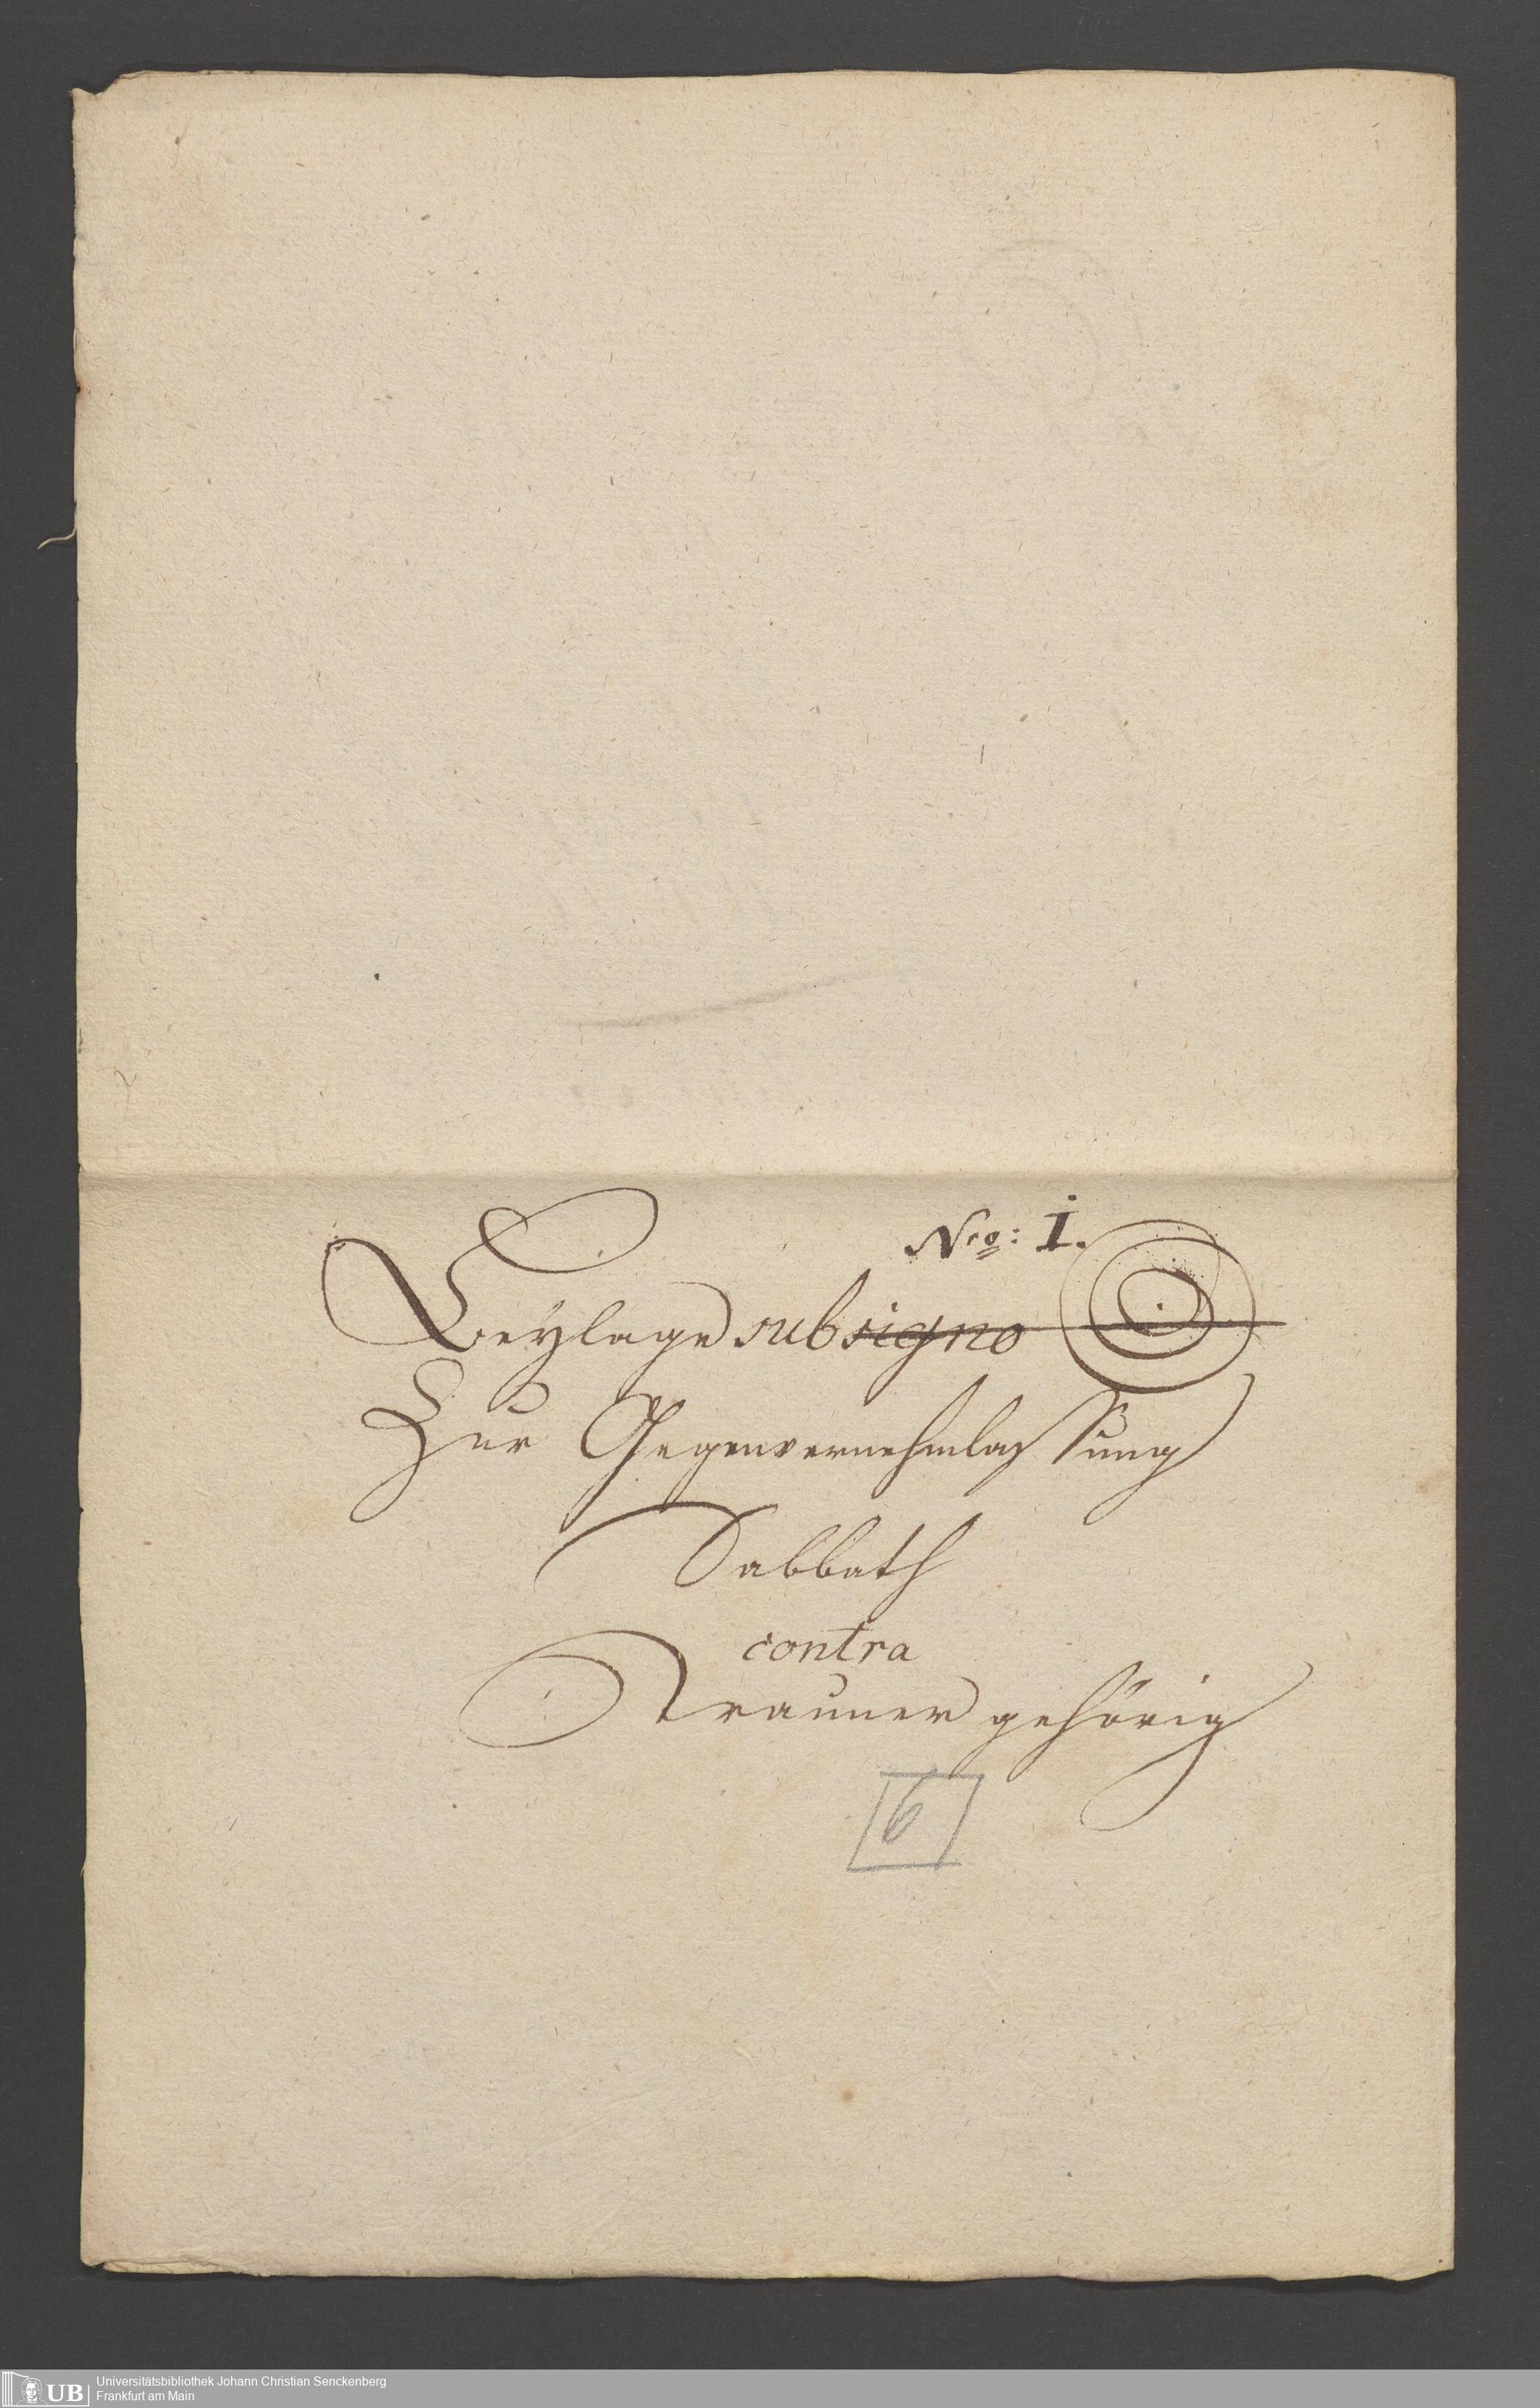 Nro: 1.
Beylage sub signo ⊙
Zur Gegenvernehmlassung
Sabbath
contra
Trauner gehörig
6
UB
Universitätsbibliothek Johann Christian Senckenberg
Frankfurt am Main